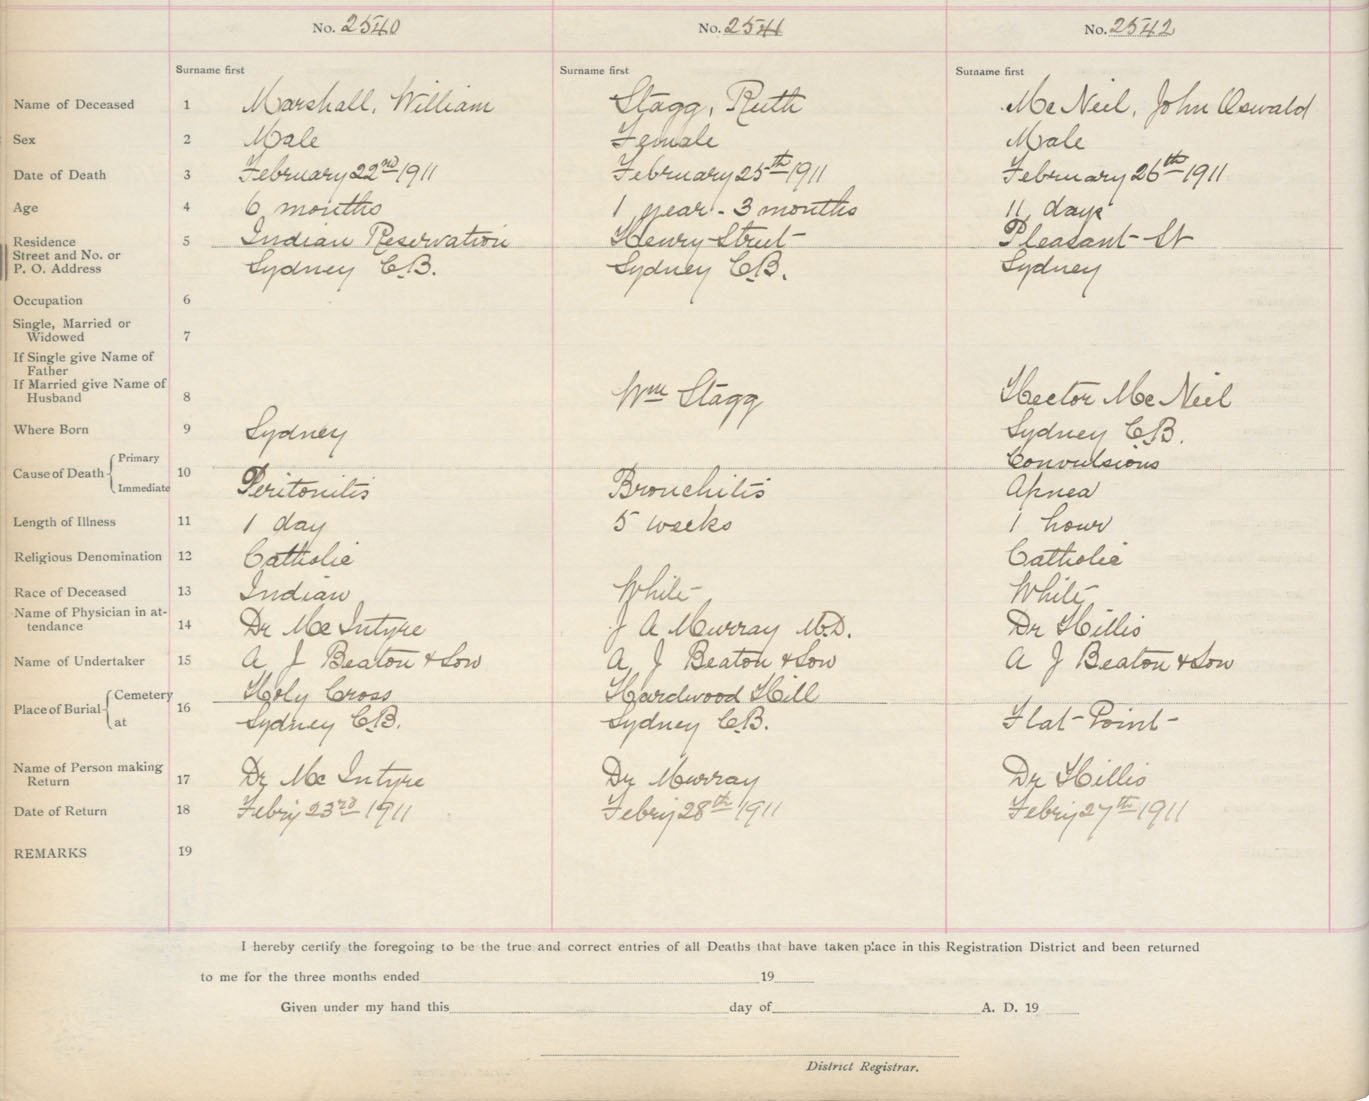 No. 2540 No. 2541 No. 2542
Surname first Surname first Surname first
Name of Deceased 1 Marshall, William Stagg, Ruth McNeil, John Oswald
Sex 2 Male Female Male
Date of Death 3 February 22nd 1911 February 25th 1911 February 26th 1911
Age 4 6 months 1 year - 3 months 11 days
Residence 5 Indian Reservation Henry Street Pleasant St
Street and No. or
P. O. Address Sydney C.B. Sydney C.B. Sydney
Occupation 6
Single, Married or
Widowed 7
If Single give Name of
Father
If Married give Name of
Husband 8 Wm Stagg Hector McNeil
Where Born 9 Sydney Sydney C.B.
Cause of Death Primary 10 Convulsions
Immediate Peritonitis Bronchitis Apnea
Length of Illness 11 1 day 5 weeks 1 hour
Religious Denomination 12 Catholic Catholic
Race of Deceased 13 Indian White White
Name of Physician in at-
tendance 14 Dr McIntyre J A Murray M.D. Dr Hillis
Name of Undertaker 15 A J Beaton & Son A J Beaton & Son A J Beaton & Son
Place of Burial Cemetery 16 Holy Cross Hardwood Hill
at Sydney C.B. Sydney C.B. Flat-Point-
Name of Person making
Return 17 Dr McIntyre Dr Murray Dr Hillis
Date of Return 18 Febry 23rd 1911 Febry 28th 1911 Febry 27th 1911
REMARKS 19
I hereby certify the foregoing to be the true and correct entries of all Deaths that have taken place in this Registration District and been returned
to me for the three months ended 19
Given under my hand this day of A. D. 19
District Registrar.